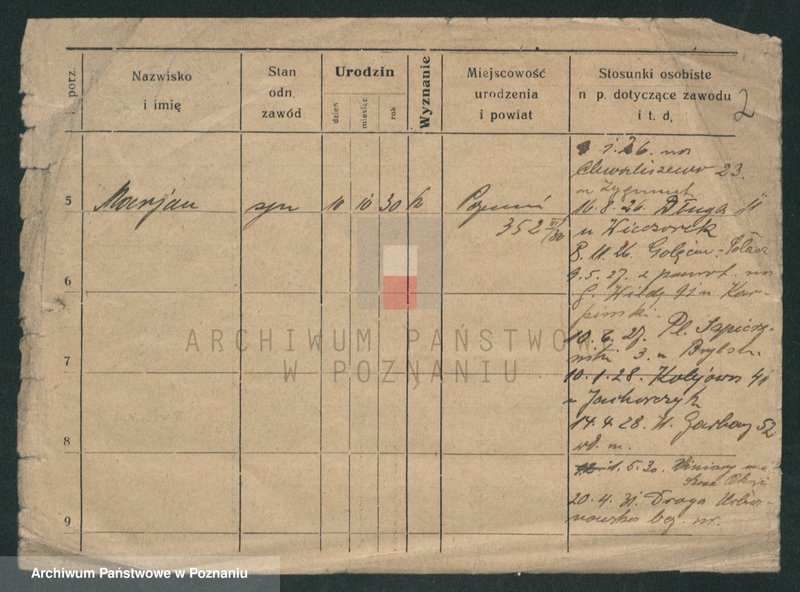 porz.
Nazwisko
i imię
Stan
odn.
zawód
Urodzin
dzień
miesiąc
rok
Wyznanie
Miejscowość
urodzenia
i powiat
Stosunki osobiste
n p. dotyczące zawodu
i t. d,
2
5
Marjan syn 10 10 30 k Poznań
352 VI/30
26. na
Chwaliszewo 23.
u Zygmunt
16.8.26. Długa 11
u Wieczorek
8.11.26. Golęcin-Sołacz
9.5.27. z powrot. na
G. Wildę 91 u Kar-
pinski.
10.6.27. Pl. Sapieży-
nski 3. u
10.1.28. Kolejowa 41
u Jachorczyk
14.4.28. W. Garbary 52
wł. m.
5.30. Winiary
20.4.31. Droga Urba-
nowska bez nr.
6
7
8
9
ARCHIWUM PAŃSTWOWE
W POZNANIU
Archiwum Państwowe w Poznaniu